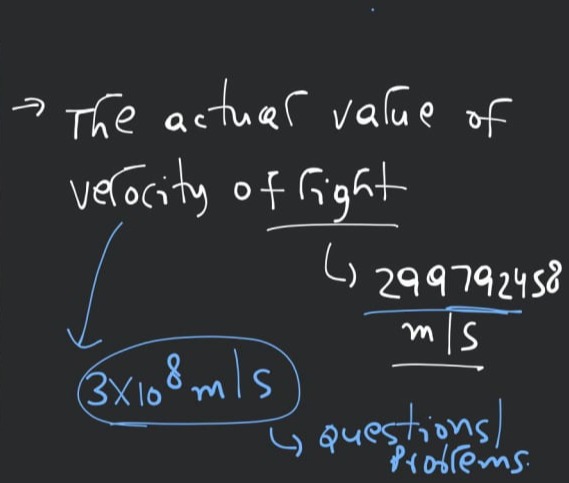 → The actual value of
velocity of light
↳ 299792458
m/s
3×10⁸ m/s
↳ questions/
problems.